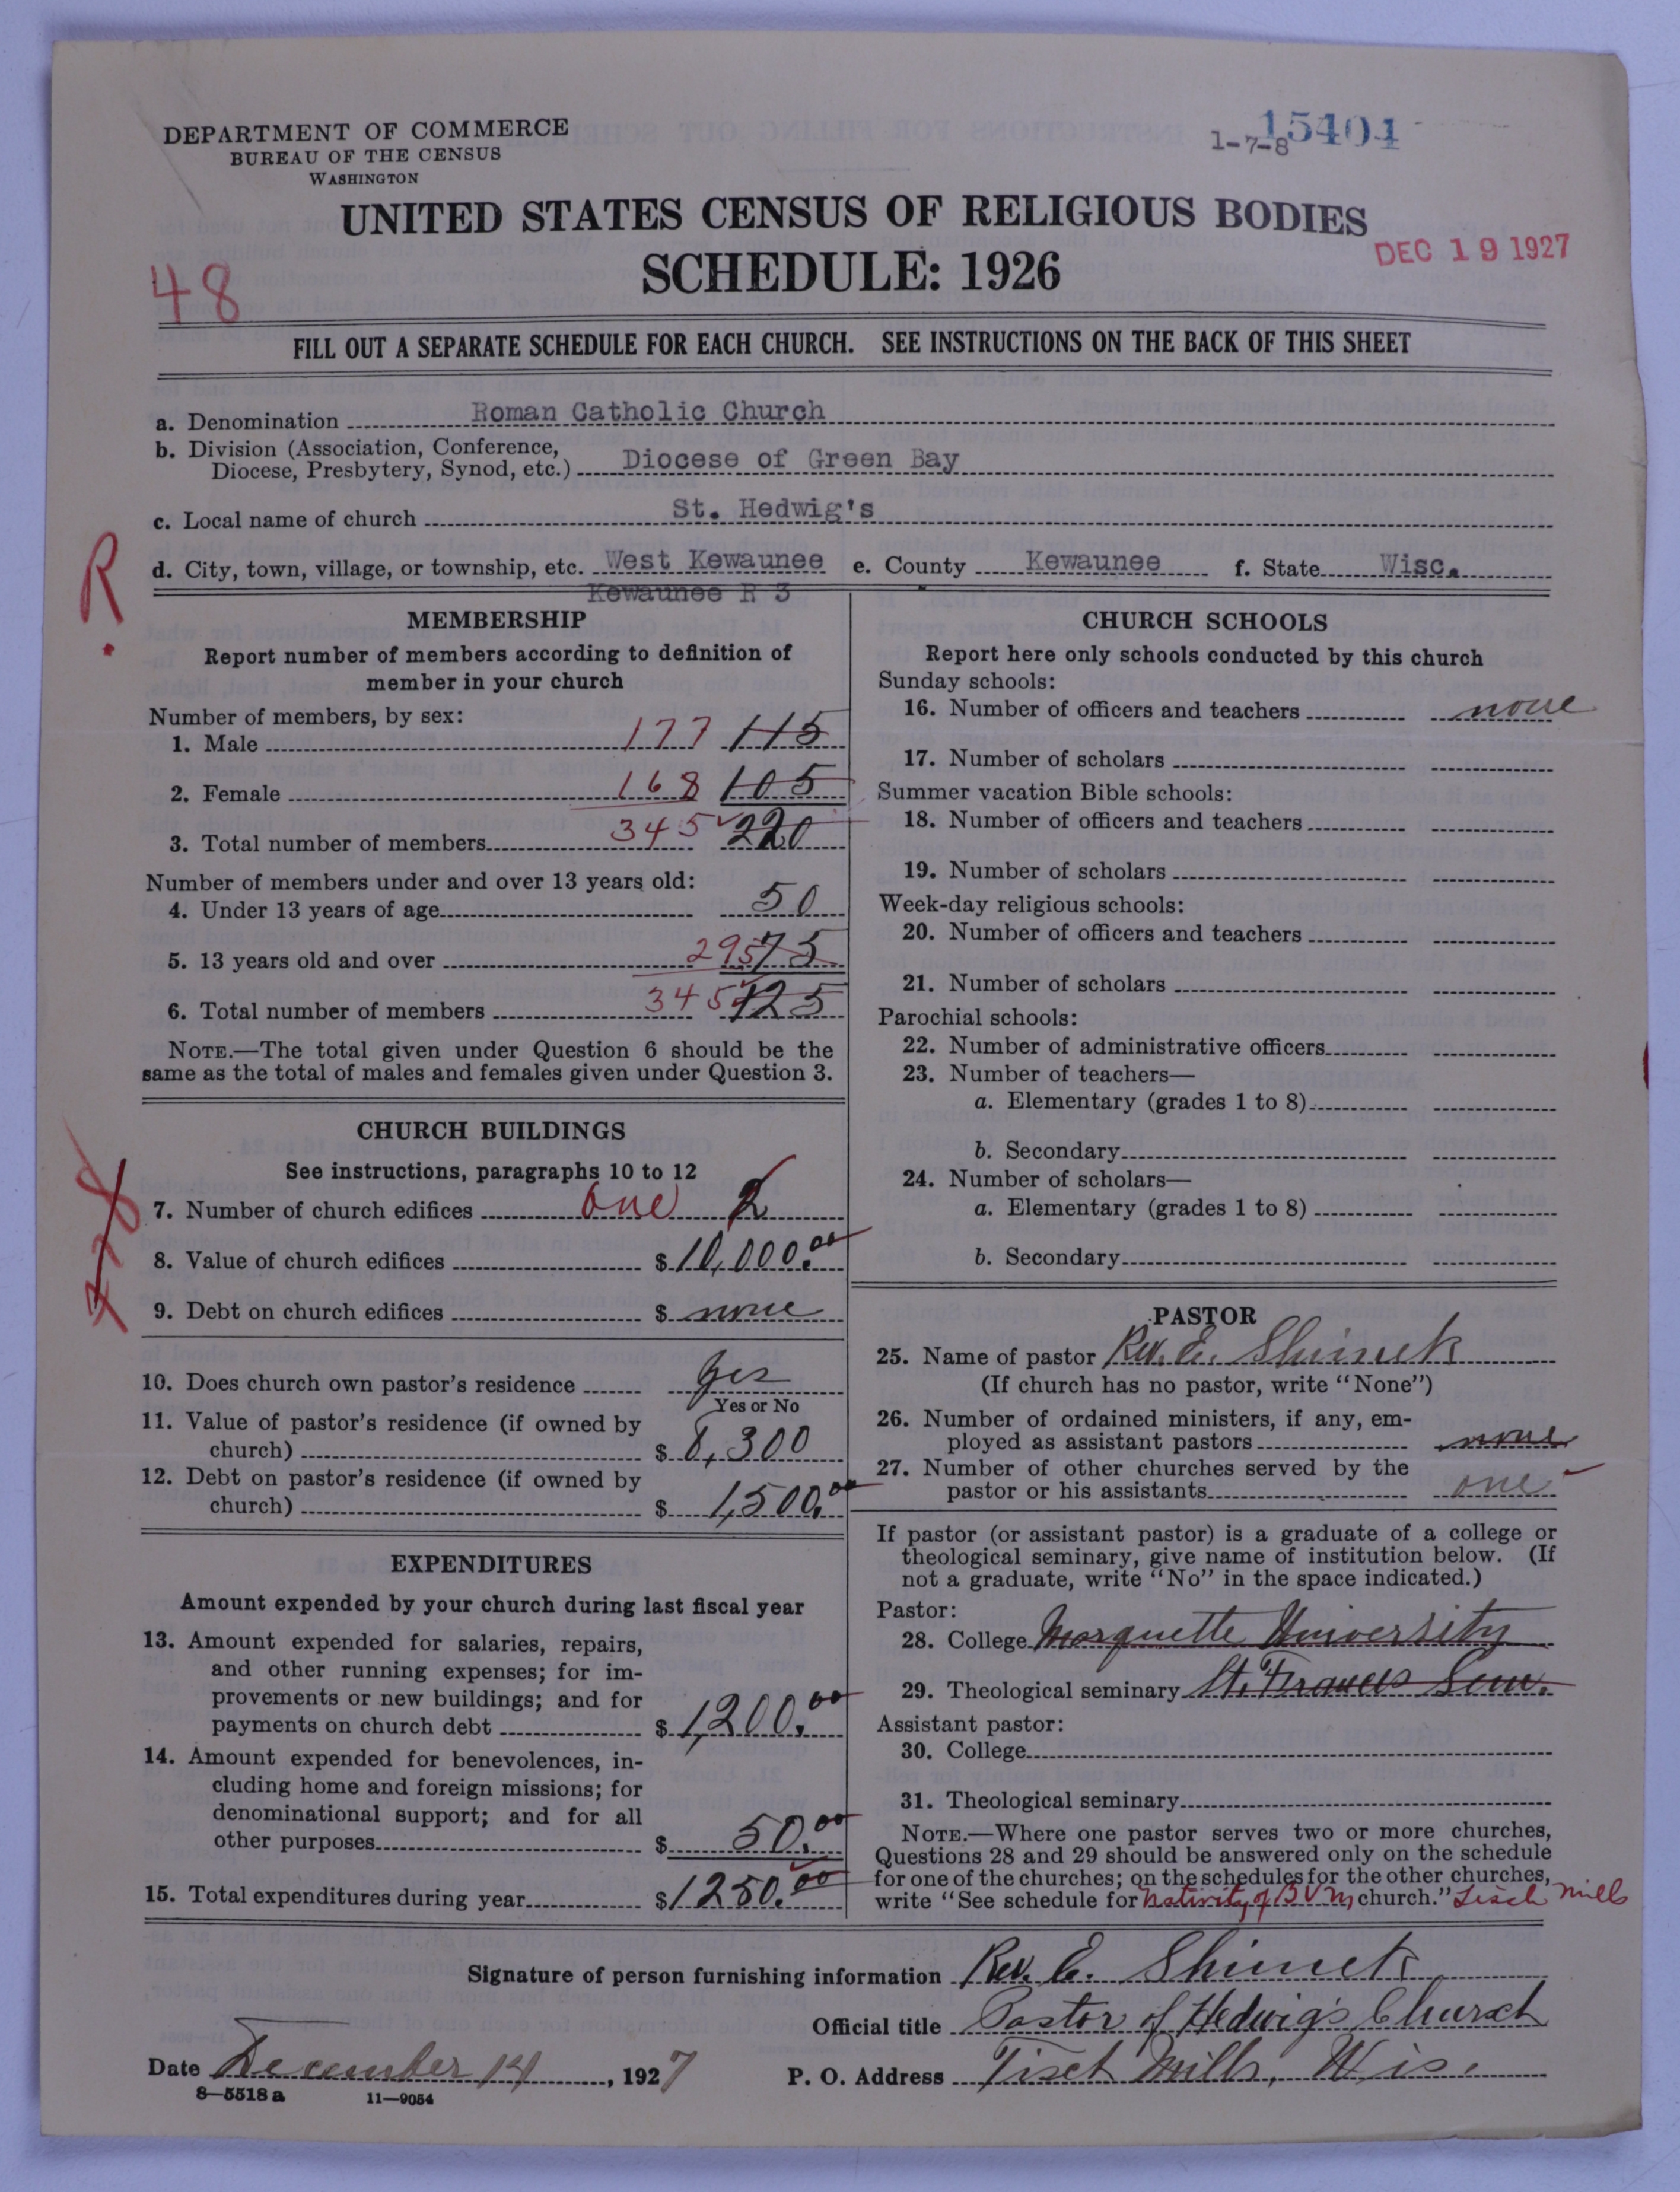 DEPARTMENT OF COMMERCE
BUREAU OF THE CENSUS
WASHINGTON
1-7-8
15404
UNITED STATES CENSUS OF RELIGIOUS BODIES
SCHEDULE: 1926
DEC 19 1927
48
FILL OUT A SEPARATE SCHEDULE FOR EACH CHURCH. SEE INSTRUCTIONS ON THE BACK OF THIS SHEET
a. Denomination Roman Catholic Church
b. Division (Association, Conference,
Diocese, Presbytery, Synod, etc.) Diocese of Green Bay
c. Local name of church St. Hedwig's
R.
d. City, town, village, or township, etc. West Kewaunee e. County Kewaunee f. State Wisc.
Kewaunee R 3
MEMBERSHIP
Report number of members according to definition of
member in your church
Number of members, by sex:
1. Male 177 115
2. Female 168 105
3. Total number of members 345 220
Number of members under and over 13 years old:
4. Under 13 years of age 50
5. 13 years old and over 295 75
6. Total number of members 345 125
NOTE.—The total given under Question 6 should be the
same as the total of males and females given under Question 3.
CHURCH BUILDINGS
See instructions, paragraphs 10 to 12
7. Number of church edifices one 2
8. Value of church edifices $ 10,000.00
9. Debt on church edifices $ none
10. Does church own pastor's residence yes
Yes or No
11. Value of pastor's residence (if owned by
church) $ 8,300
12. Debt on pastor's residence (if owned by
church) $ 1,500.00
EXPENDITURES
Amount expended by your church during last fiscal year
13. Amount expended for salaries, repairs,
and other running expenses; for im-
provements or new buildings; and for
payments on church debt $ 1,200.00
14. Amount expended for benevolences, in-
cluding home and foreign missions; for
denominational support; and for all
other purposes $ 50.00
15. Total expenditures during year $ 1250.00
CHURCH SCHOOLS
Report here only schools conducted by this church
Sunday schools:
16. Number of officers and teachers none
17. Number of scholars
Summer vacation Bible schools:
18. Number of officers and teachers
19. Number of scholars
Week-day religious schools:
20. Number of officers and teachers
21. Number of scholars
Parochial schools:
22. Number of administrative officers
23. Number of teachers—
a. Elementary (grades 1 to 8)
b. Secondary
24. Number of scholars—
a. Elementary (grades 1 to 8)
b. Secondary
PASTOR
25. Name of pastor Rev. E. Shimek
(If church has no pastor, write "None")
26. Number of ordained ministers, if any, em-
ployed as assistant pastors none
27. Number of other churches served by the
pastor or his assistants one
If pastor (or assistant pastor) is a graduate of a college or
theological seminary, give name of institution below. (If
not a graduate, write "No" in the space indicated.)
Pastor:
28. College Marquette University
29. Theological seminary St. Francis Sem.
Assistant pastor:
30. College
31. Theological seminary
NOTE.—Where one pastor serves two or more churches,
Questions 28 and 29 should be answered only on the schedule
for one of the churches; on the schedules for the other churches,
write "See schedule for Nativity of B V M church." Tisch Mills
Signature of person furnishing information Rev. E. Shimek
Official title Pastor of Hedwig's Church
Date December 14, 1927 P. O. Address Tisch Mills, Wis.
8—5518a 11—9054